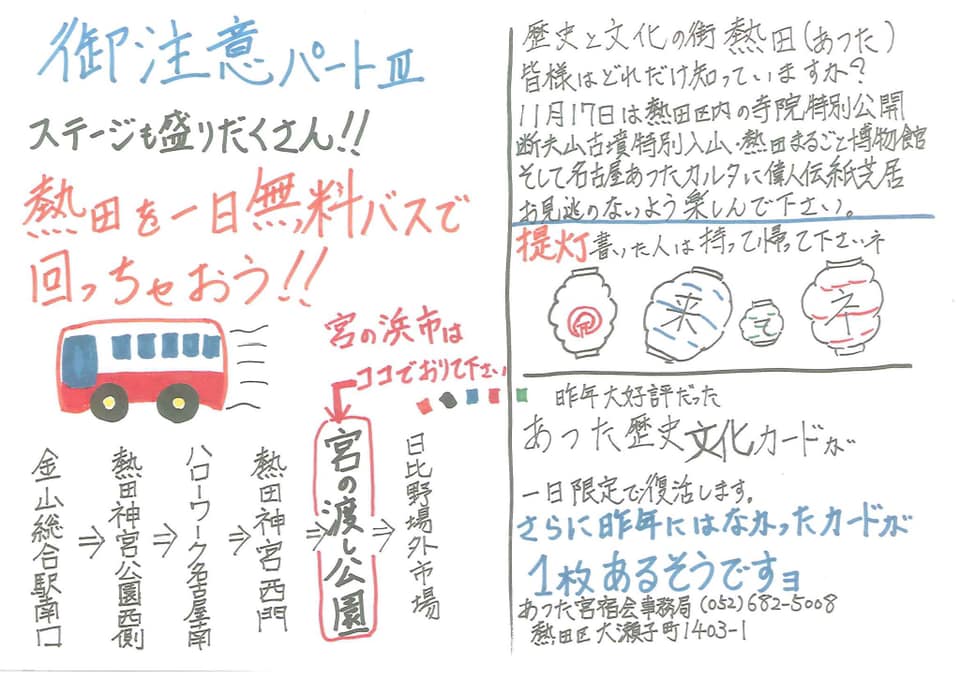 御注意パートⅢ
ステージも盛りだくさん!!
熱田を一日無料バスで
回っちゃおう!!
宮の浜市は
ココでおりて下さい
金山総合駅南口
⇒
熱田神宮公園西側
⇒
ハローワーク名古屋南
⇒
熱田神宮西門
⇒
宮の渡し公園
⇒
日比野場外市場
歴史と文化の街熱田(あつた)
皆様はどれだけ知っていますか?
11月17日は熱田区内の寺院特別公開
断夫山古墳特別入山・熱田まるごと博物館
そして名古屋あつたカルタに偉人伝紙芝居
お見逃のないよう楽しんで下さい。
提灯書いた人は持って帰って下さいネ
来
て
ネ
昨年大好評だった
あつた歴史文化カードが
一日限定で復活します。
さらに昨年にはなかったカードが
1枚あるそうですョ
あつた宮宿会事務局(052)682-5008
熱田区大瀬子町1403-1